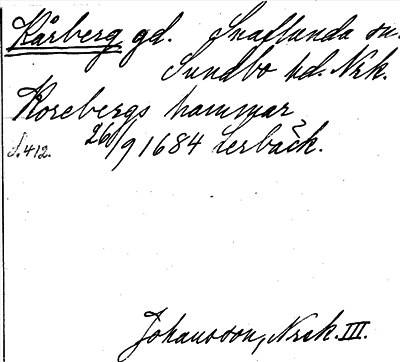 Kårberg gd. Snaflunda sn.
Sundbo hd. Nrk.
Korebergs hammar
S. 412. 26/9 1684 Lerbäck.
Johansson, Nrk. III.